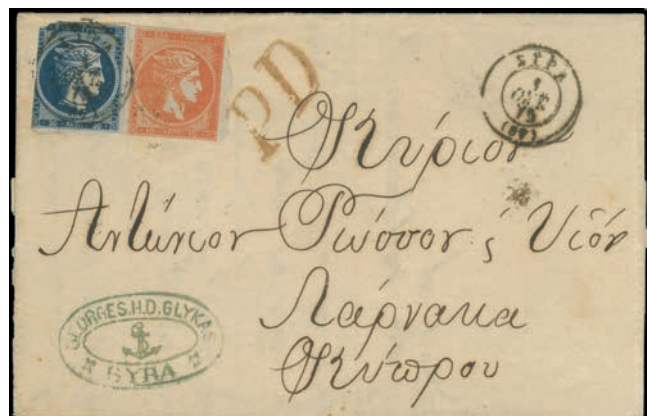 PD
ΣΥΡΑ
1
ΟΚΤ
(67)
Κύριον
Αντώνιον Ρώσσον ς Υἱόν
Λάρνακα
Κύπρου
GEORGES.H.D.GLYKAS
SYRA